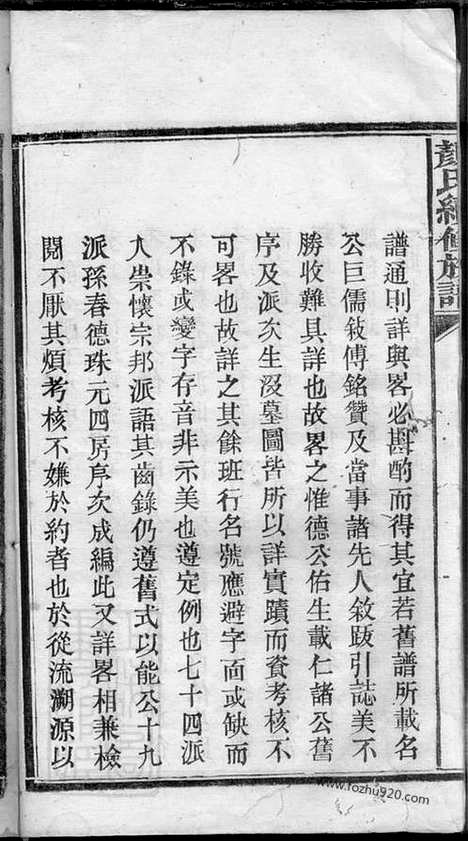 顏氏續修族譜
譜通則詳與畧必斟酌而得其宜若舊譜所載名
公巨儒敍傳銘贊及當事諸先人敘跋引誌美不
勝收難具詳也故畧之惟德公佑生載仁諸公舊
序及派次生沒墓圖皆所以詳實蹟而資考核不
可畧也故詳之其餘班行名號應避字面或缺而
不錄或變字存音非示美也遵定例也七十四派
人崇懷宗邦派語其齒錄仍遵舊式以能公十九
派孫春德珠元四房序次成編此又詳畧相兼檢
閱不厭其煩考核不嫌於約者也於從流溯源以
www.fozhu920.com